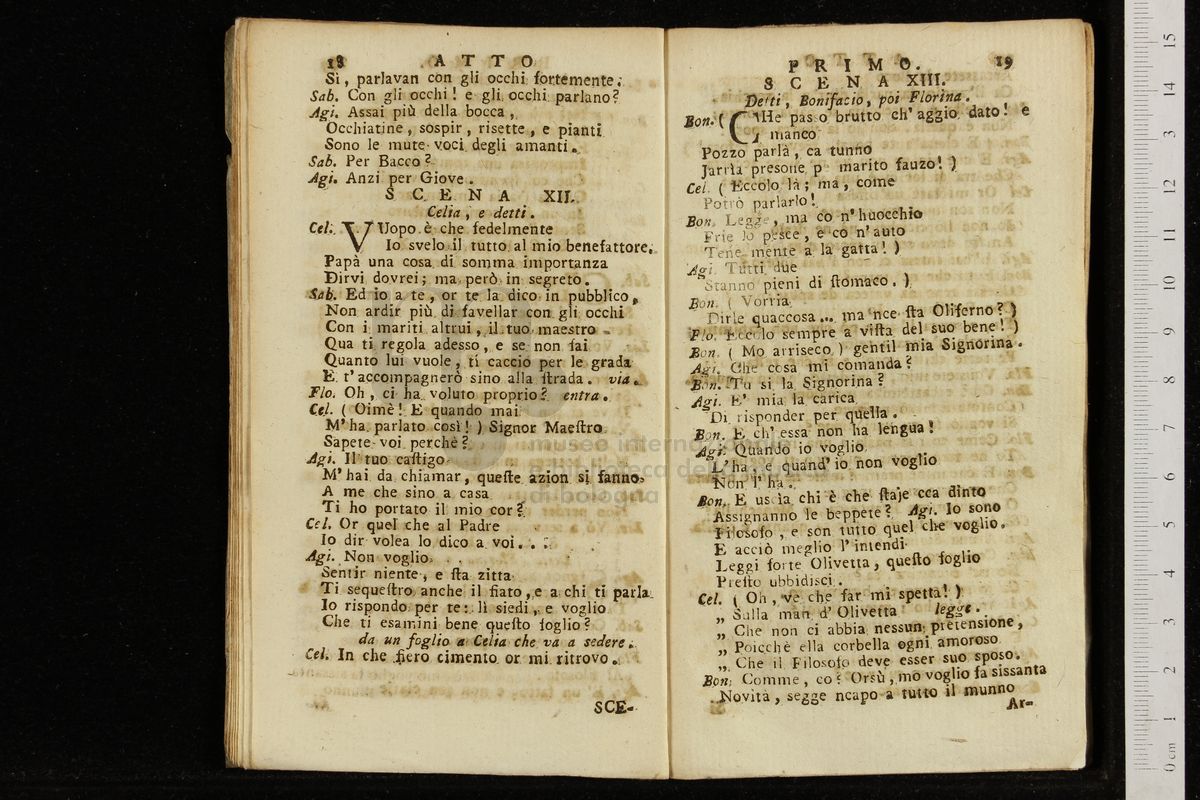 18 ATTO
Sì, parlavan con gli occhi fortemente.
Sab. Con gli occhi! e gli occhi parlano?
Agi. Assai più della bocca,
Occhiatine, sospir, risette, e pianti
Sono le mute voci degli amanti.
Sab. Per Bacco?
Agi. Anzi per Giove.
SCENA XII.
Celia, e detti.
Cel. VUopo è che fedelmente
Io svelo il tutto al mio benefattore.
Papà una cosa di somma importanza
Dirvi dovrei; ma però in segreto.
Sab. Ed io a te, or te la dico in pubblico,
Non ardir più di favellar con gli occhi
Con i mariti altrui, il tuo maestro
Qua ti regola adesso, e se non fai
Quanto lui vuole, ti caccio per le grada
E t'accompagnerò sino alla ſtrada. via.
Flo. Oh, ci ha voluto proprio? entra.
Cel. ( Oimè! E quando mai
M'ha parlato così! ) Signor Maeſtro
Sapete voi perchè?
Agi. Il tuo caſtigo
M'hai da chiamar, queſte azion si fanno,
A me che sino a casa
Ti ho portato il mio cor?
Cel. Or quel che al Padre
Io dir volea lo dico a voi...
Agi. Non voglio
Sentir niente, e ſta zitta
Ti sequeſtro anche il fiato, e a chi ti parla
Io rispondo per te: lì siedi, e voglio
Che ti esamini bene queſto foglio?
da un foglio a Celia che va a sedere.
Cel. In che fiero cimento or mi ritrovo.
SCE-
PRIMO. 19
SCENA XIII.
Detti, Bonifacio, poi Florina.
Bon. ( CHe passo brutto ch'aggio dato! e
manco
Pozzo parlà, ca tunno
Jarrìa presone pe marito fauzo! )
Cel. ( Eccolo là; ma, come
Potrò parlarlo!
Bon. Legge, ma co n'huocchio
Frie lo pesce, e co n'auto
Tene mente a la gatta! )
Agi. Tutti due
Stanno pieni di ſtomaco. )
Bon. ( Vorria
Dirle quaccosa... ma nce ſta Oliferno? )
Flo. Eccolo sempre a viſta del suo bene! )
Bon. ( Mo arriseco ) gentil mia Signorina.
Agi. Che cosa mi comanda?
Bon. Tu si la Signorina?
Agi. E' mia la carica
Di risponder per quella.
Bon. E ch'essa non ha lengua!
Agi. Quando io voglio
L'ha, e quand'io non voglio
Non l'ha.
Bon. E uscìa chi è che ſtaje cca dinto
Assignanno le beppete? Agi. Io sono
Filosofo, e son tutto quel che voglio.
E acciò meglio l'intendi
Leggi forte Olivetta, queſto foglio
Preſto ubbidisci.
Cel. ( Oh, ve che far mi spetta! )
„ Sulla man d'Olivetta legge.
„ Che non ci abbia nessun pretensione,
„ Poicchè ella corbella ogni amoroso
„ Che il Filosofo deve esser suo sposo.
Bon. Comme, co? Orsù, mo voglio fa sissanta
Novità, segge ncapo a tutto il munno
Ar-
museo internazionale
e biblioteca della musica
di bologna
0 cm 1 2 3 4 5 6 7 8 9 10 11 12 13 14 15